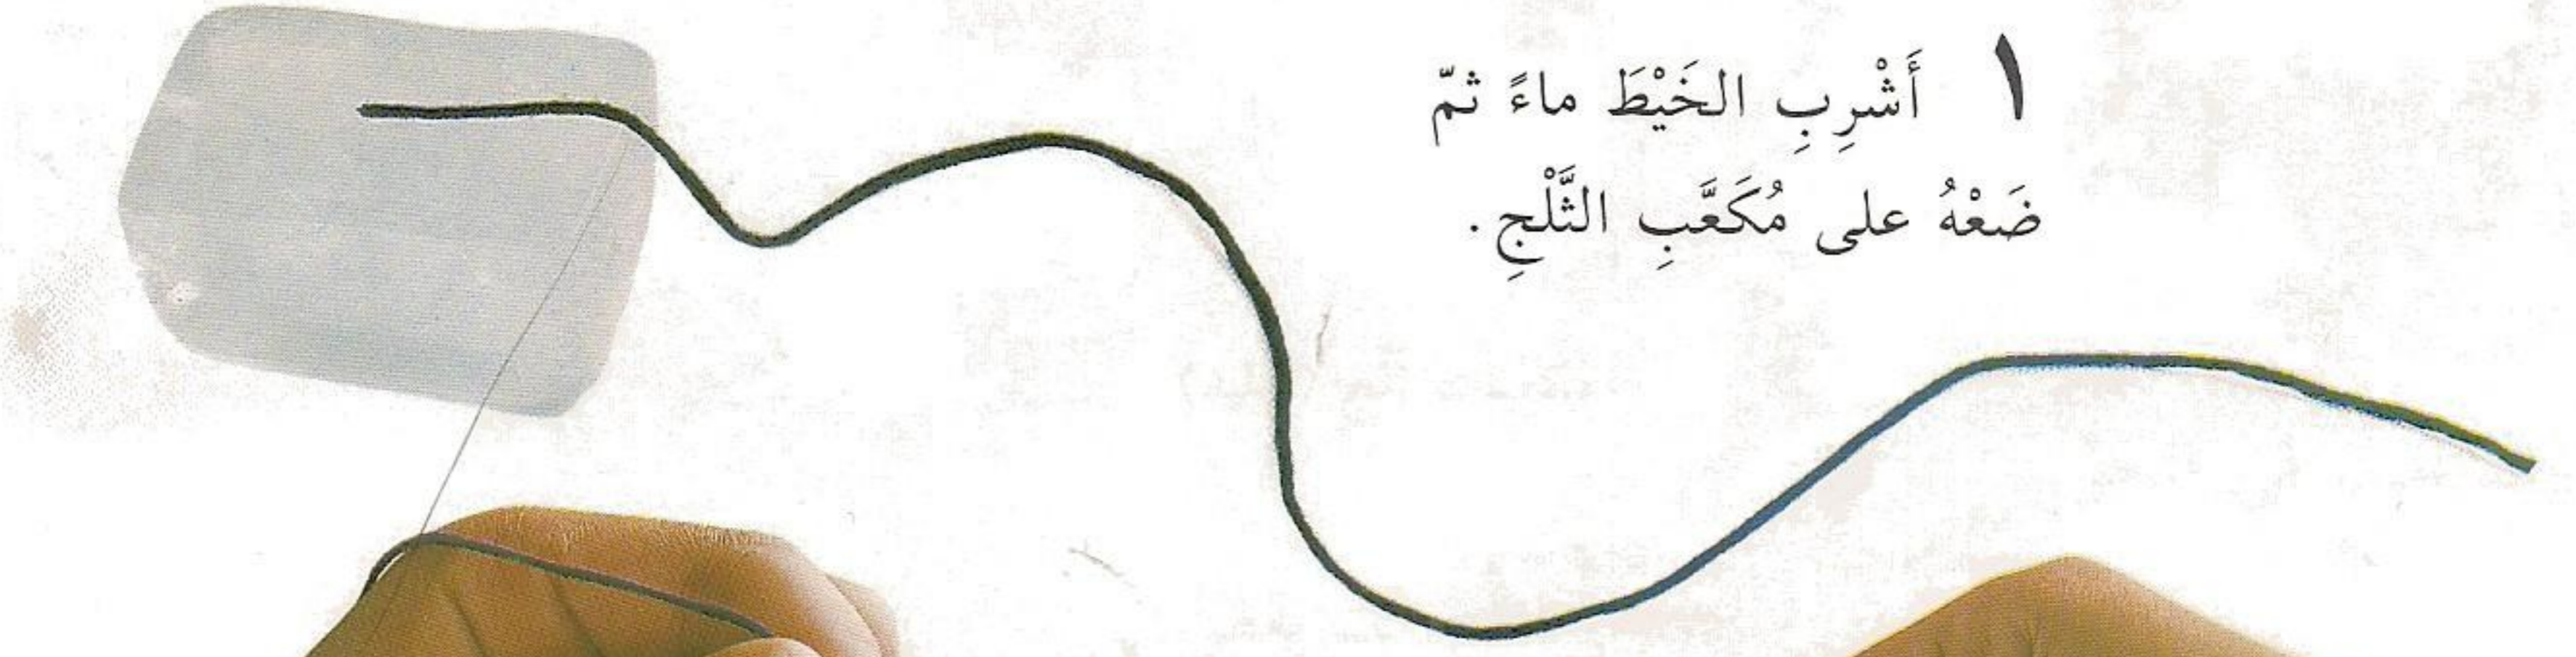 ١ أَشْرِبِ الخَيْطَ ماءً ثمّ
ضَعْهُ على مُكَعَّبِ الثَّلْجِ.